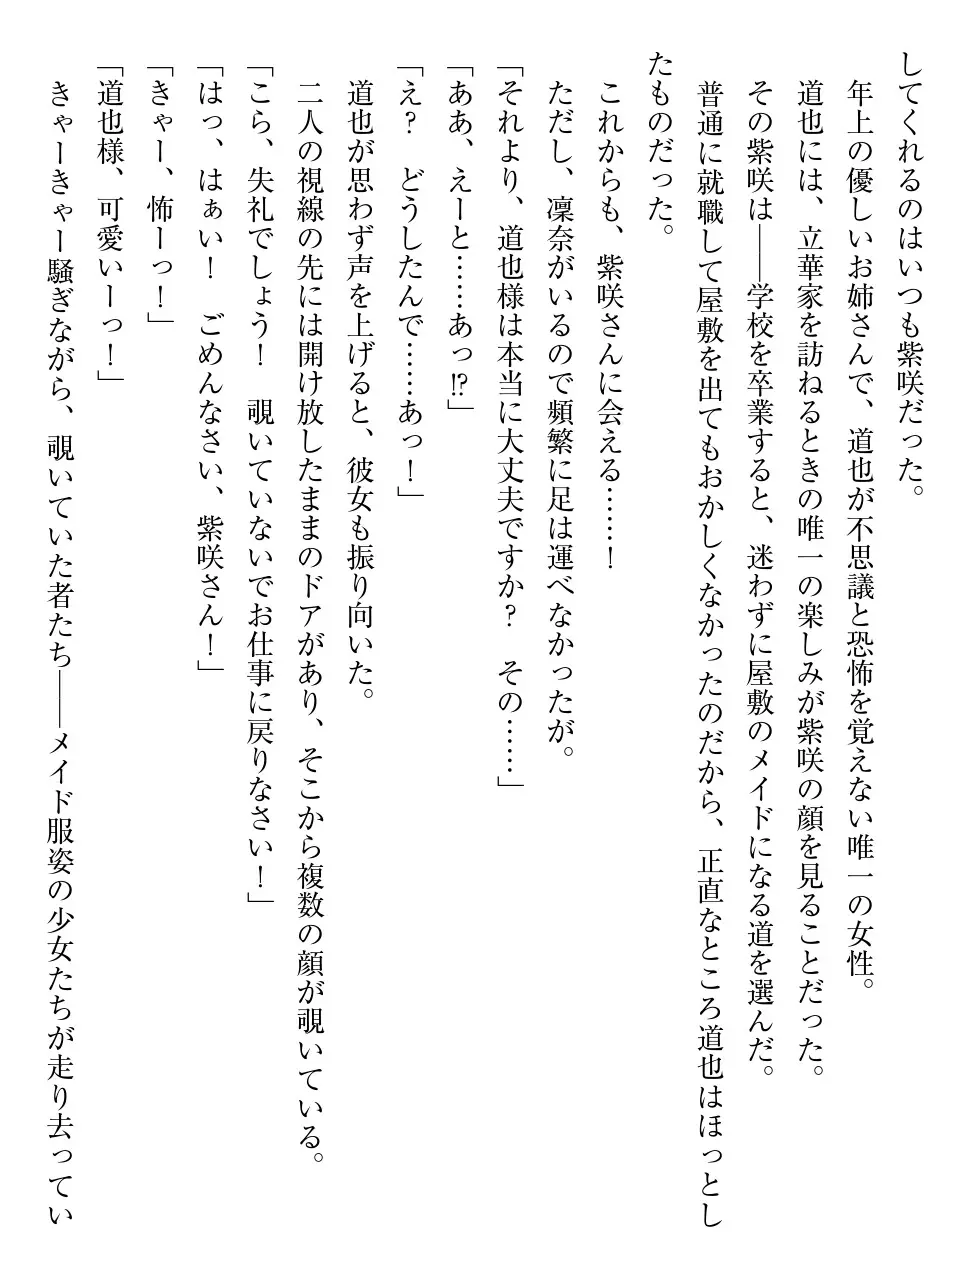 してくれるのはいつも紫咲だった。
年上の優しいお姉さんで、道也が不思議と恐怖を覚えない唯一の女性。
道也には、立華家を訪ねるときの唯一の楽しみが紫咲の顔を見ることだった。
その紫咲は――学校を卒業すると、迷わずに屋敷のメイドになる道を選んだ。
普通に就職して屋敷を出てもおかしくなかったのだから、正直なところ道也はほっとし
たものだった。
これからも、紫咲さんに会える……！
ただし、凜奈がいるので頻繁に足は運べなかったが。
「それより、道也様は本当に大丈夫ですか？　その……」
「ああ、えーと……あっ⁉」
「え？　どうしたんで……あっ！」
道也が思わず声を上げると、彼女も振り向いた。
二人の視線の先には開け放したままのドアがあり、そこから複数の顔が覗いている。
「こら、失礼でしょう！　覗いていないでお仕事に戻りなさい！」
「はっ、はぁい！　ごめんなさい、紫咲さん！」
「きゃー、怖ーっ！」
「道也様、可愛いーっ！」
きゃーきゃー騒ぎながら、覗いていた者たち――メイド服姿の少女たちが走り去ってい